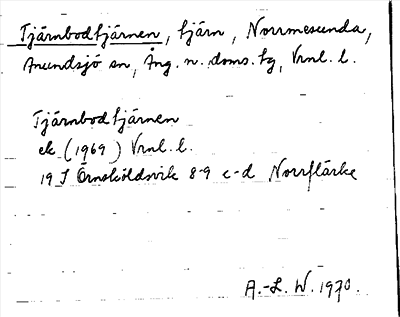 Tjärnbodtjärnen, tjärn, Norrmesunda,
Anundsjö sn, Ång. n. doms. hg, Vrnl. l.
Tjärnbodtjärnen
ek (1969) Vrnl. l.
19 J Örnsköldsvik 8-9 c-d Norrflärke
A.-L. W. 1970.